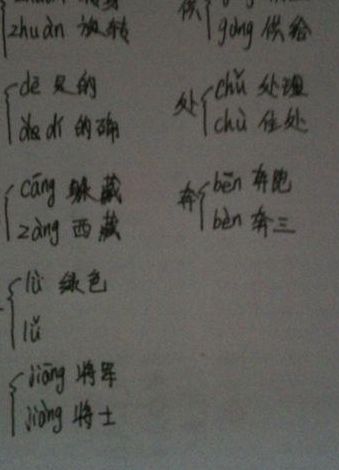 zhuàn 旋转
gōng 供给
dē 见的
dí 的确
处 chǔ 处理
chù 住处
cāng 躲藏
zàng 西藏
奔 bēn 奔跑
bèn 奔三
lǜ 绿色
lǚ
jiāng 将军
jiàng 将士